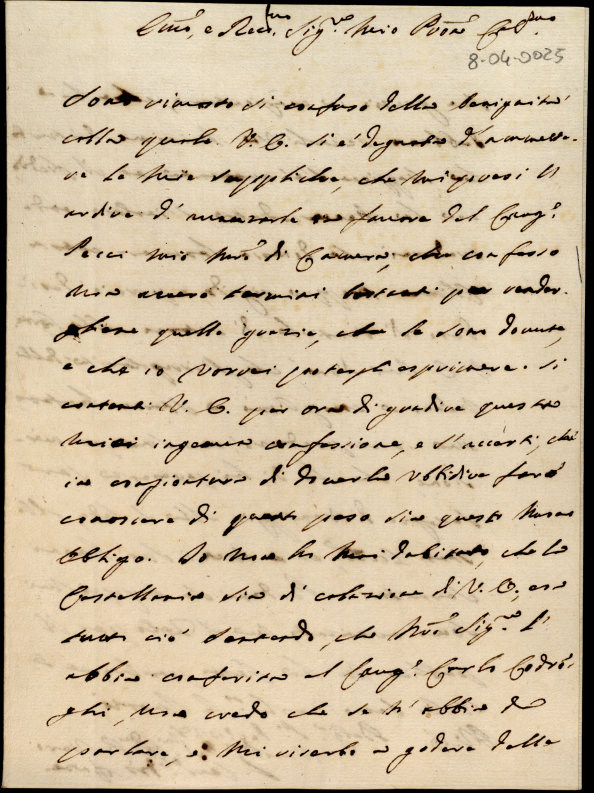 Em.o, e Rev.mo Sig.re mio P̃rõn Col.mo
8-04-0025
Sono rimasto sì confuso della benignità
colla quale V. E. si è degnata d'ammette-
re le mie suppliche, che mi presi l'
ardire d'avanzarle in favore del Cav.r
Pecci mio M.ro di Camera, che confesso
non avere termini bastanti per render-
gliene quelle grazie, che le sono dovute,
e che io vorrei potergli esprimere. Si
contenti V. E. per ora di gradire questa
mia ingenua confessione, e s'accerti, che
in congiontura di doverla ubbidire farò
conoscere di quanto peso sia questo nuovo
obligo. Io non ho mai dubitato, che la
Castellania sia di colazione di V. E., con
tutto ciò sentendo, che N.ro Sig.re l'
abbia conferita al Cav.r Carlo
, non credo che se n'abbia da
parlare, e mi riserbo a godere delle